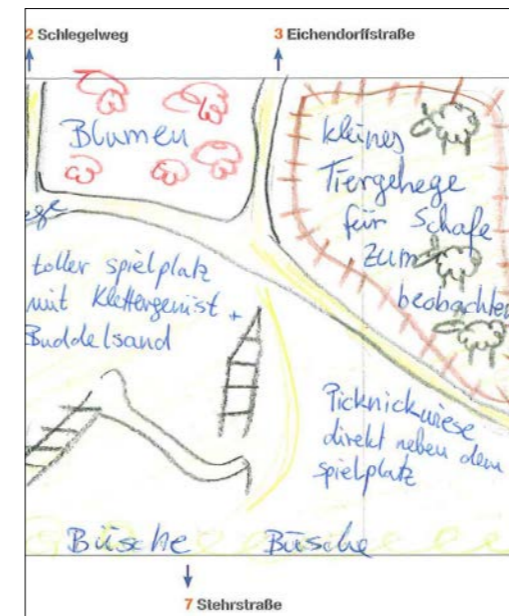 2 Schlegelweg
3 Eichendorffstraße
Blumen
kleines
Tiergehege
für Schafe
zum
beobachten
toller Spielplatz
mit Klettergerüst +
Buddelsand
Picknickwiese
direkt neben dem
spielplatz
Büsche Büsche
7 Stehrstraße